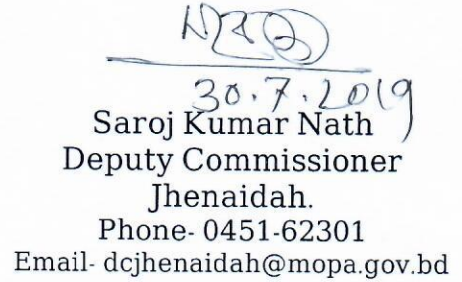 30.7.2019
Saroj Kumar Nath
Deputy Commissioner
Jhenaidah.
Phone- 0451-62301
Email- dcjhenaidah@mopa.gov.bd